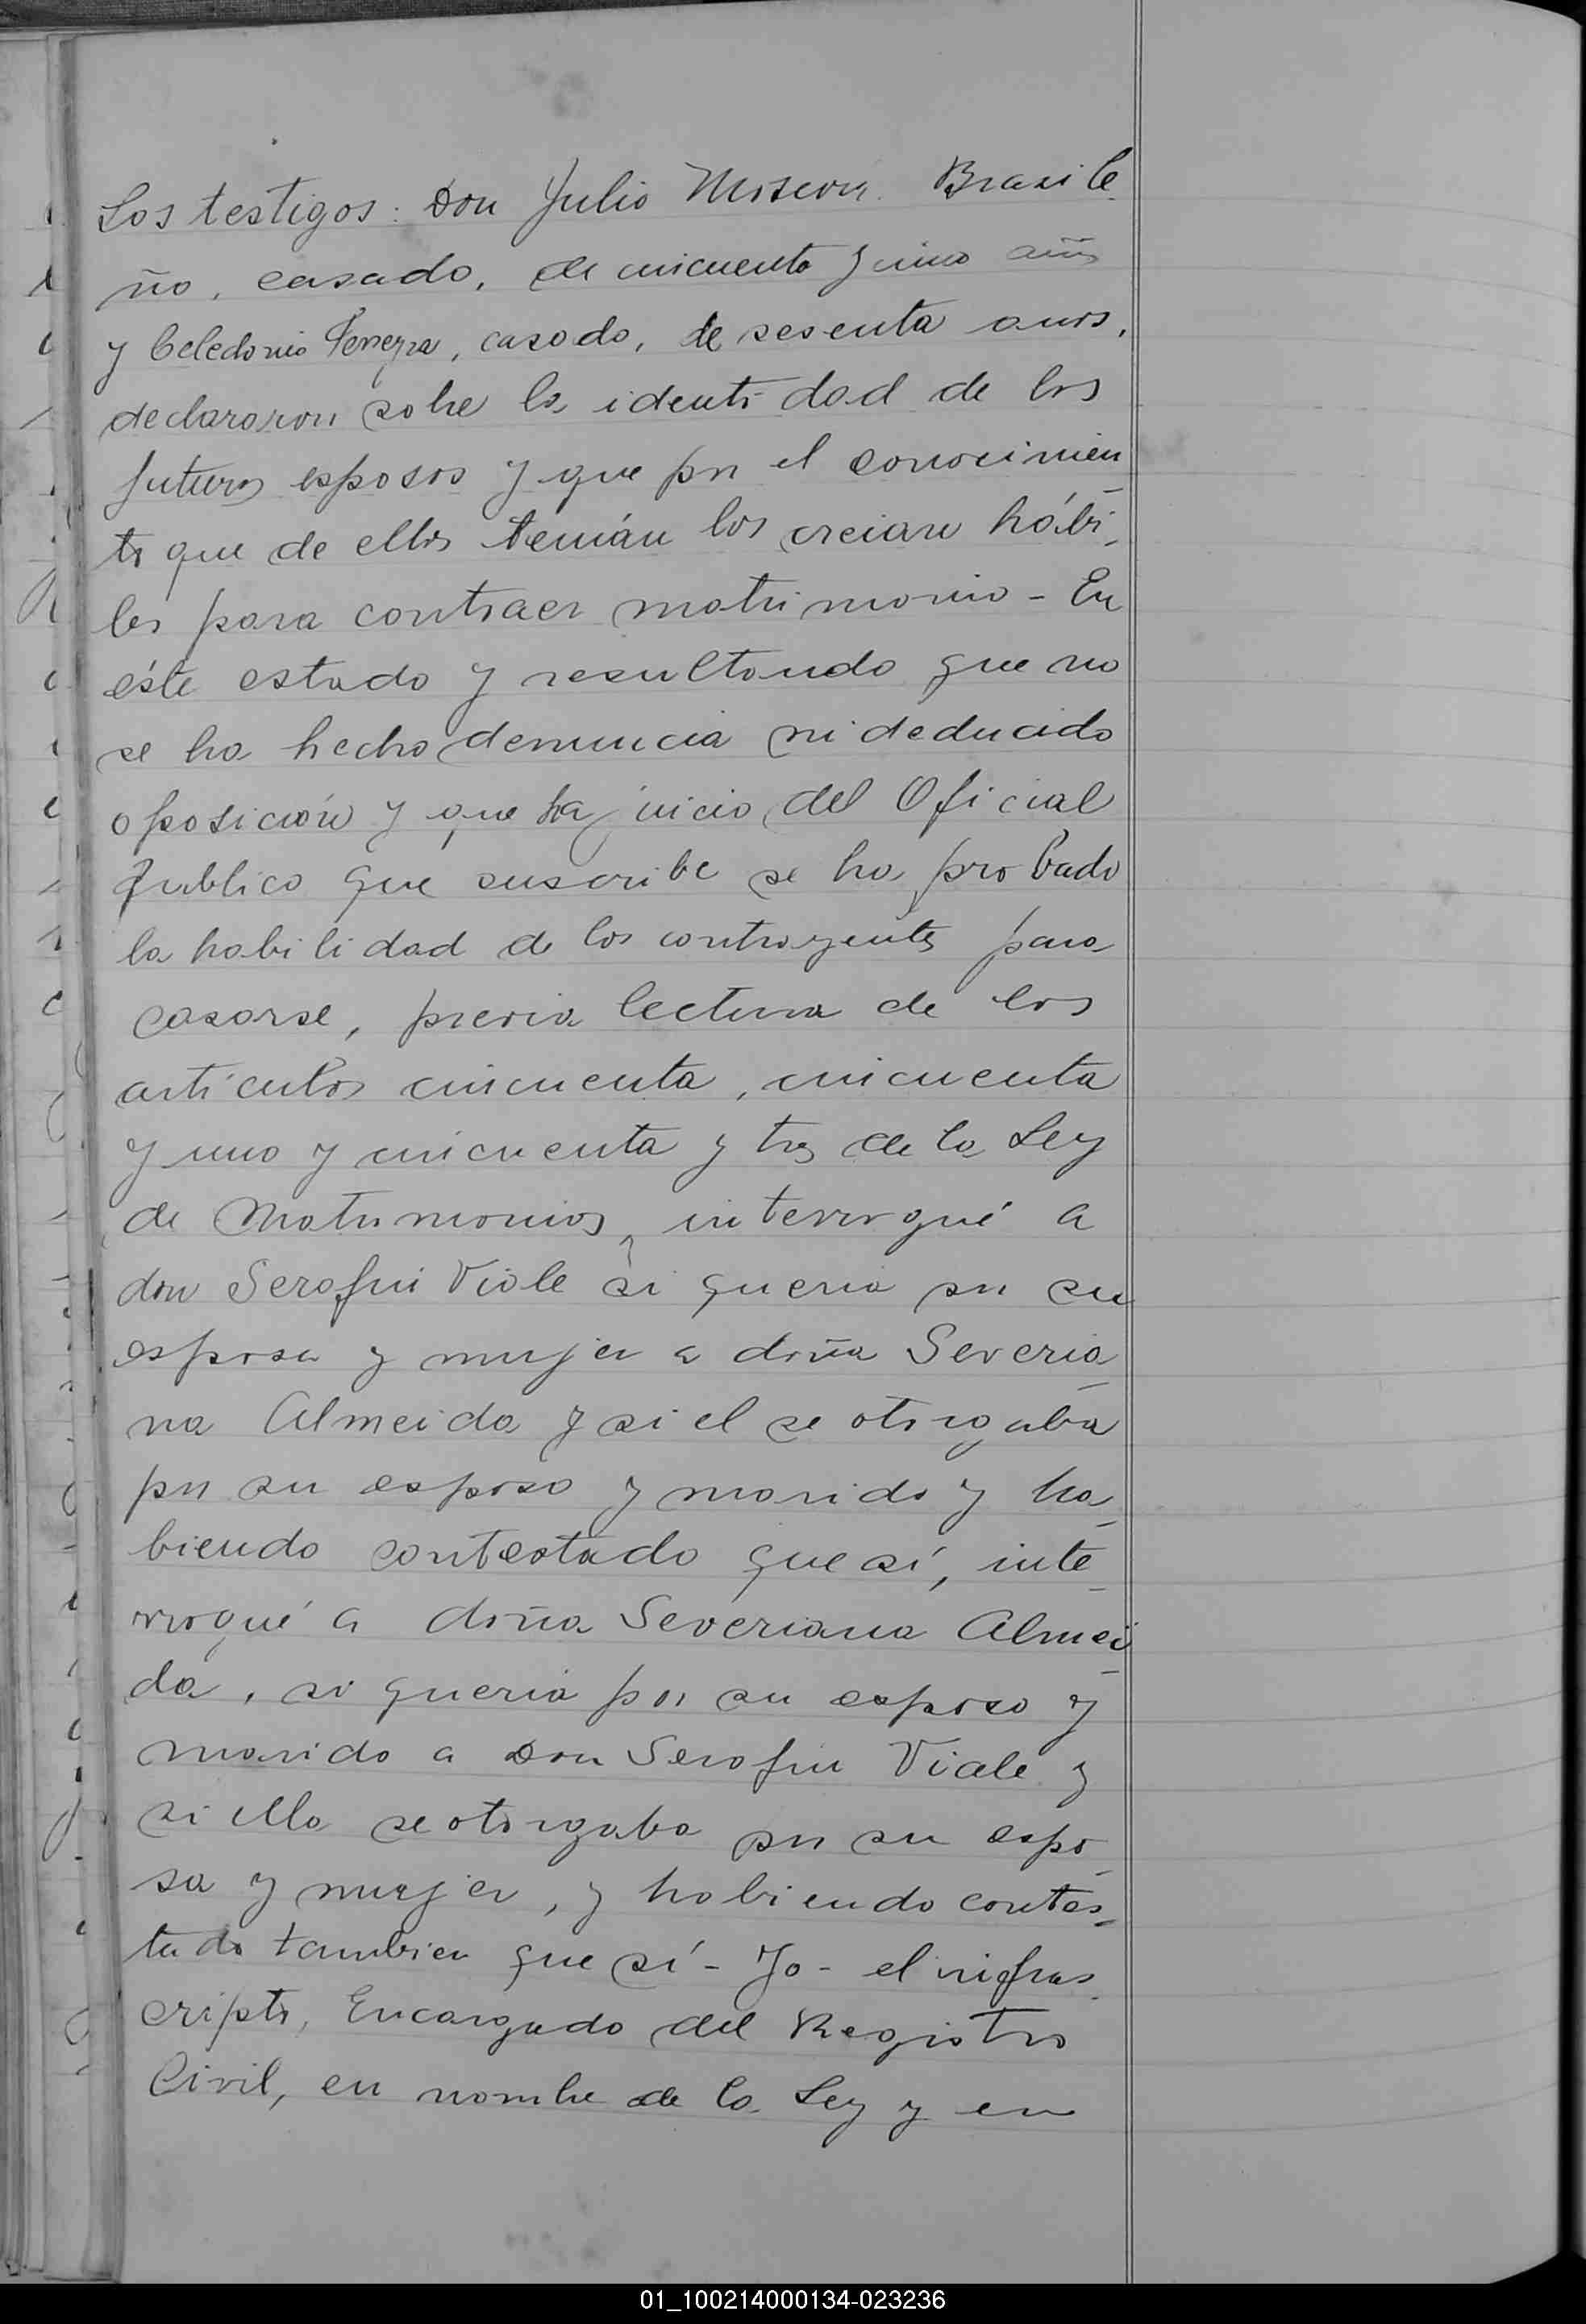 Los testigos: Don Julio Brasile
ño, casado, de cincuenta y cinco años
y Celedonio Ferreyra, casado, de sesenta anos,
declararon sobre la identidad de los
futuros esposos y que por el conocimien
to que de ellos tenían los creian hábi
les para contraer matrimonio - En
éste estado y resultando que no
se ha hecho denuncia ni deducido
oposición y que ha juicio del Oficial
Publico que suscribe se ha probado
la habilidad de los contrayentes para
casarse, previa lectura de los
articulos cincuenta, cincuenta
y uno y cincuenta y tres de la Ley
de Matrimonios, interrogué a
don Serafin Viale si queria por su
esposa y mujer a doña Severia
na Almeida y si el se otorgaba
por su esposo y marido y ha
biendo contestado que sí, inte
rrogué a doña Severiana Almei
da, si queria por su esposo y
marido a Don Serafin Viale y
si ella se otorgaba por su espo
sa y mujer, y habiendo contes
tado tambien que sí - Yo - el infras
cripto, Encargado del Registro
Civil, en nombre de la Ley y en
01_100214000134-023236